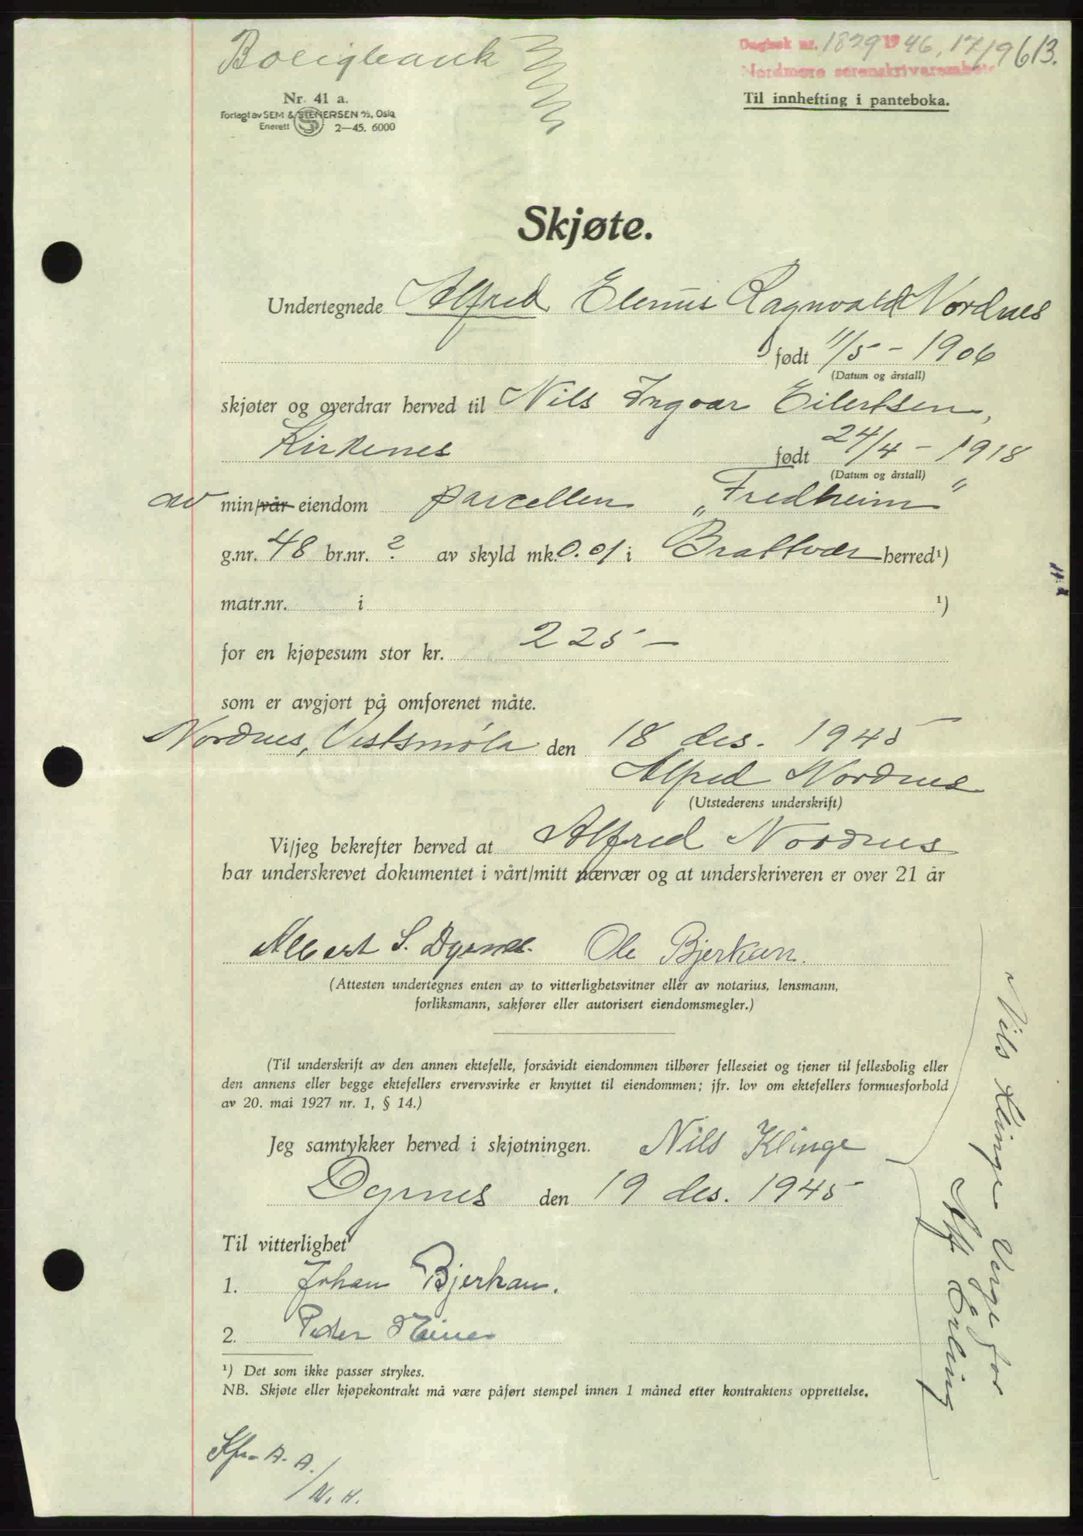 Boligbank
Dagbok nr. 1829 1946, 17/9 613.
Nordmøre sorenskriverembete
Til innhefting i panteboka.
Nr. 41 a.
Forlagt av SEM & STENERSEN A/S, Oslo
Enerett 2—45. 6000
Skjøte.
Undertegnede Alfred Ragnvald Nordnes
født 11/5 - 1906
(Datum og årstall)
skjøter og overdrar herved til Nils Ingvar Eilertsen,
Kirkenes født 24/4 - 1918
(Datum og årstall)
av min/vår eiendom parcellen „Fredheim“
g.nr. 48 br.nr. ? av skyld mk. 0.01 i Brattvær herred¹)
matr.nr. i ¹)
for en kjøpesum stor kr. 225 —
som er avgjort på omforenet måte.
Nordnes, Vestsmøla den 18 des. 1945
Alfred Nordnes
(Utstederens underskrift)
Vi/jeg bekrefter herved at Alfred Nordnes
har underskrevet dokumentet i vårt/mitt nærvær og at underskriveren er over 21 år
Albert S. Dyrnes. Ole Bjerkan.
(Attesten undertegnes enten av to vitterlighetsvitner eller av notarius, lensmann,
forliksmann, sakfører eller autorisert eiendomsmegler.)
(Til underskrift av den annen ektefelle, forsåvidt eiendommen tilhører felleseiet og tjener til fellesbolig eller
den annens eller begge ektefellers ervervsvirke er knyttet til eiendommen; jfr. lov om ektefellers formuesforhold
av 20. mai 1927 nr. 1, § 14.)
Jeg samtykker herved i skjøtningen. Nils Klinge
Dyrnes den 19 des. 1945
Til vitterlighet
1. Johan Bjerkan.
2. Peder
¹) Det som ikke passer strykes.
NB. Skjøte eller kjøpekontrakt må være påført stempel innen 1 måned etter kontraktens opprettelse.
Nils Klinge Verge for
Alf Erling
Kfr. A. A.
/N. H.